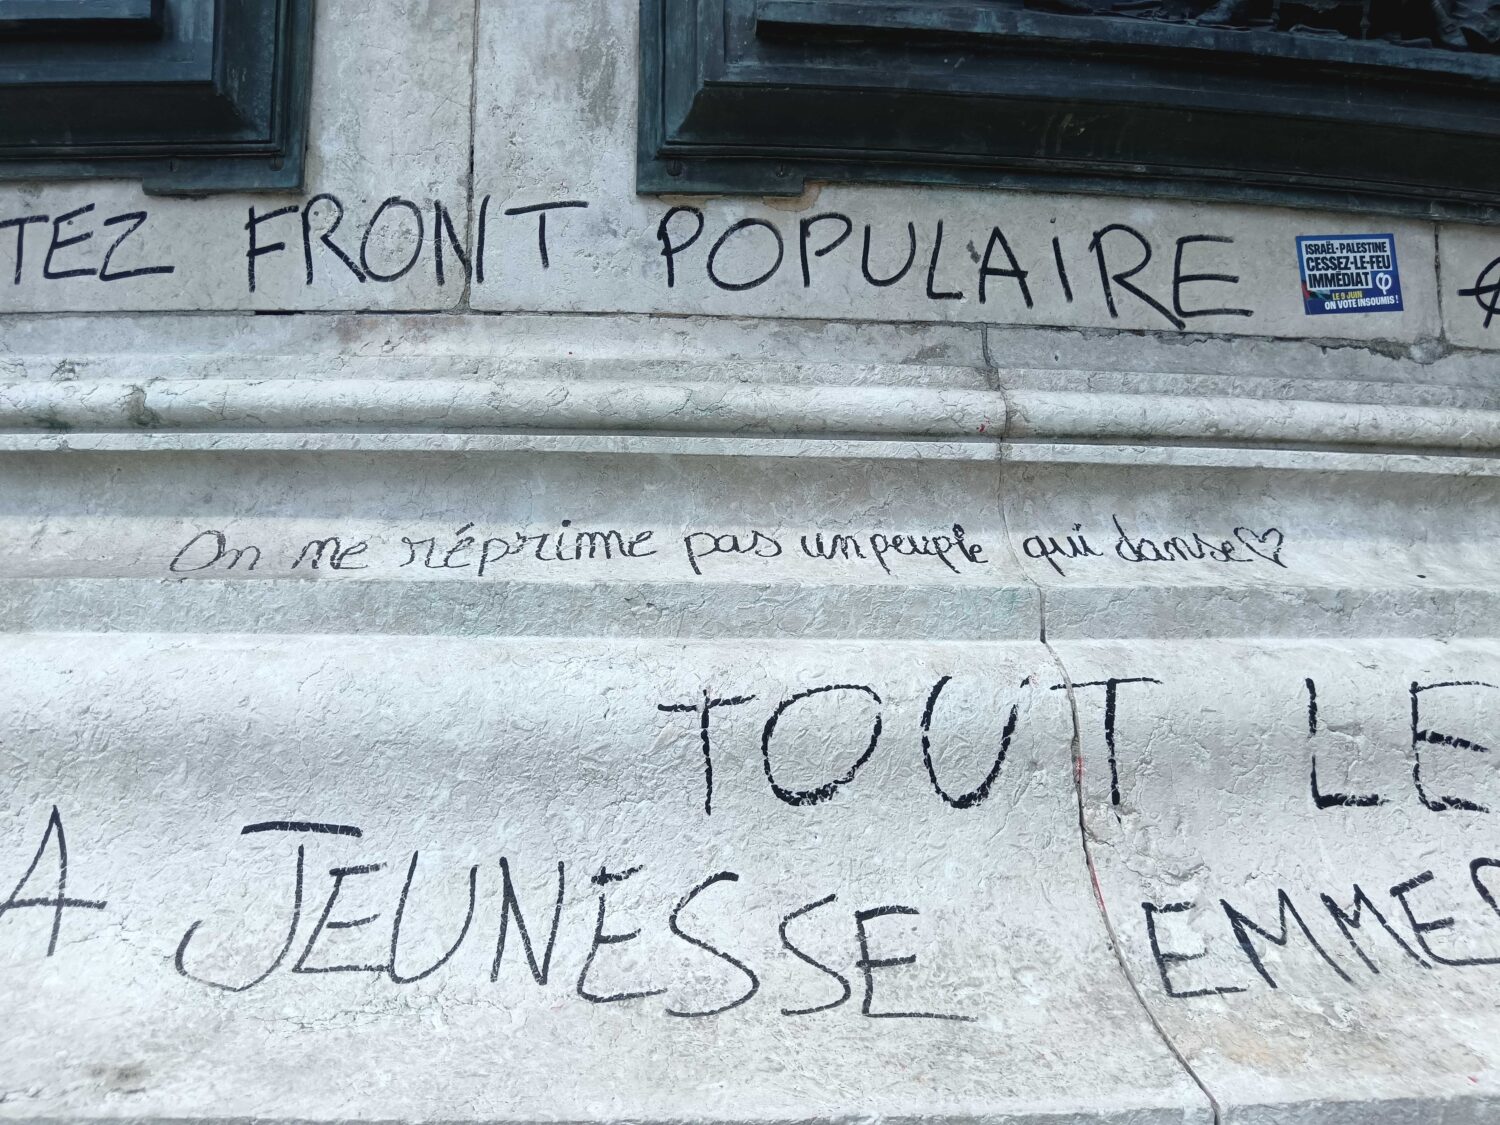 TEZ FRONT POPULAIRE
ISRAËL-PALESTINE
CESSEZ-LE-FEU
IMMÉDIAT
LE 9 JUIN
ON VOTE INSOUMIS !
On me réprime pas un peuple qui danse♡
TOUT LE
A JEUNESSE EMMER